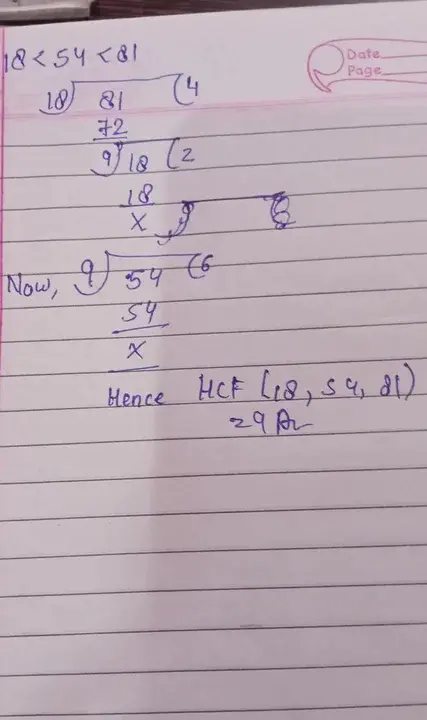 Date
Page
18 < 54 < 81
18) 81 (4
72
9) 18 (2
18
x
Now, 9) 54 (6
54
x
Hence HCF (18, 54, 81)
= 9 Ar